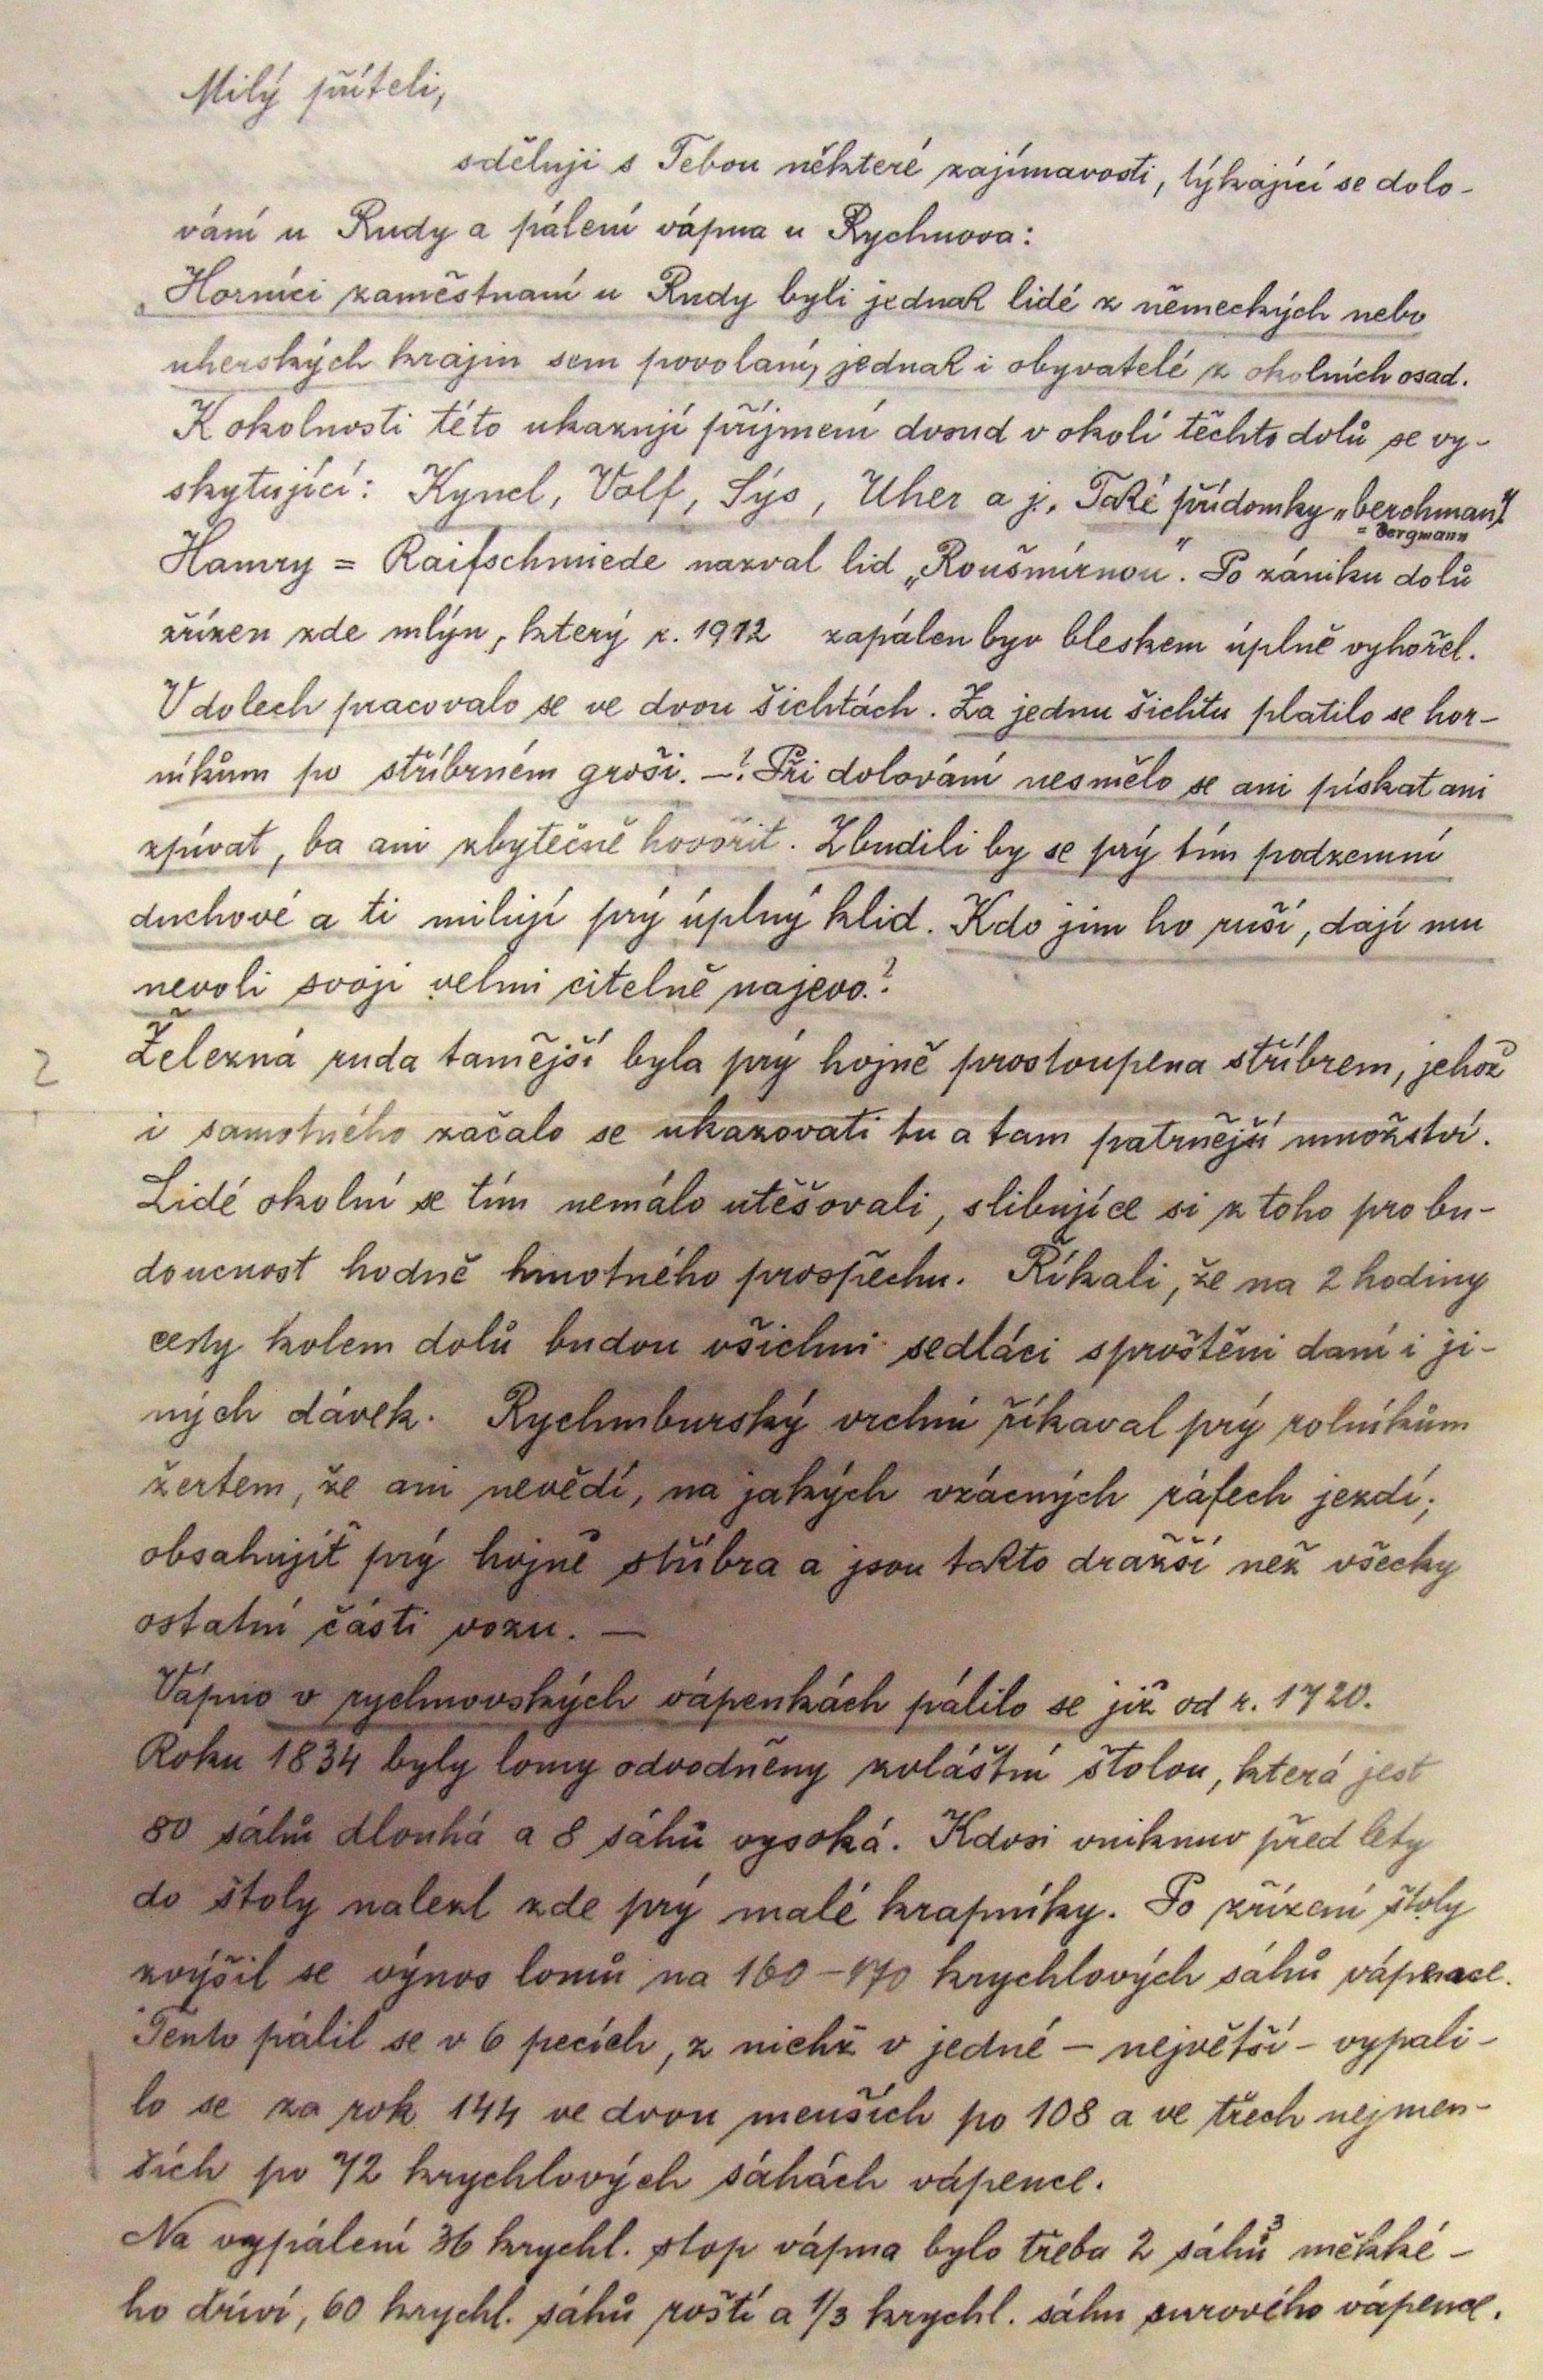 Milý příteli,
sděluji s Tebou některé zajímavosti, týkající se dolo-
vání u Rudy a pálení vápna u Rychnova:
Horníci zaměstnaní u Rudy byli jednak lidé z německých nebo
uherských krajin sem povolaní, jednak i obyvatelé z okolních osad.
K okolnosti této ukazují příjmení dosud v okolí těchto dolů se vy-
skytující: Kyncl, Volf, Sýs, Uher a j. Také přídomky „berchman“.
= Bergmann
Hamry = Raifschmiede nazval lid „Roušmírnou“. Po zániku dolů
zřízen zde mlýn, který r. 1912 zapálen byv bleskem úplně vyhořel.
V dolech pracovalo se ve dvou šichtách. Za jednu šichtu platilo se hor-
níkům po stříbrném groši. —? Při dolování nesmělo se ani pískat ani
zpívat, ba ani zbytečně hovořit. Zbudili by se prý tím podzemní
duchové a ti milují prý úplný klid. Kdo jim ho ruší, dají mu
nevoli svoji velmi citelně najevo.?
2 Železná ruda tamější byla prý hojně prostoupena stříbrem, jehož
i samotného začalo se ukazovati tu a tam patrnější množství.
Lidé okolní se tím nemálo utěšovali, slibujíce si z toho pro bu-
doucnost hodně hmotného prospěchu. Říkali, že na 2 hodiny
cesty kolem dolů budou všichni sedláci sproštěni daní i ji-
ných dávek. Rychmburský vrchní říkaval prý rolníkům
žertem, že ani nevědí, na jakých vzácných ráfech jezdí;
obsahujíť prý hojně stříbra a jsou takto dražší než všecky
ostatní části vozu. —
Vápno v rychnovských vápenkách pálilo se již od r. 1720.
Roku 1834 byly lomy odvodněny zvláštní štolou, která jest
80 sáhů dlouhá a 8 sáhů vysoká. Kdosi vniknuv před lety
do štoly nalezl zde prý malé krapníky. Po zřízení štoly
zvýšil se výnos lomů na 160-170 krychlových sáhů vápence.
Tento pálil se v 6 pecích, z nichž v jedné - největší - vypali-
lo se za rok 144 ve dvou menších po 108 a ve třech nejmen-
ších po 72 krychlových sáhách vápence.
Na vypálení 36 krychl. stop vápna bylo třeba 2 sáhů³ měkké-
ho dříví, 60 krychl. sáhů roští a 1/3 krychl. sáhu surového vápence.